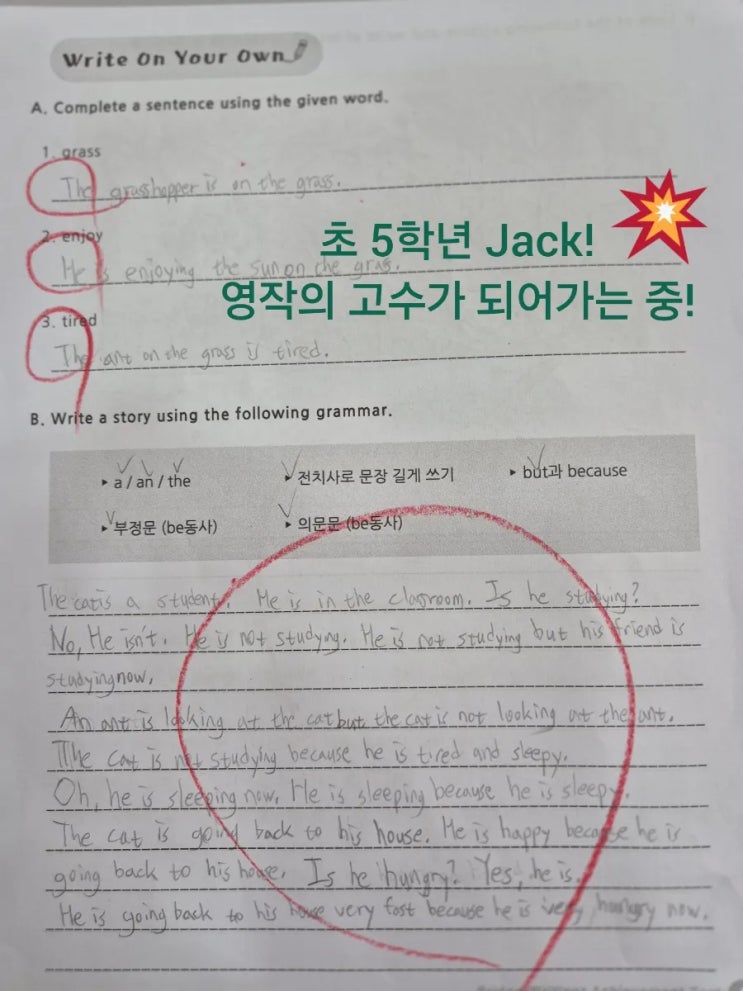 Write On Your Own
A. Complete a sentence using the given word.
1. grass
The grasshopper is on the grass.
초 5학년 Jack!
2. enjoy
He is enjoying the sun on the gras.
영작의 고수가 되어가는 중!
3. tired
The ant on the grass is tired.
B. Write a story using the following grammar.
▸ a / an / the ▸ 전치사로 문장 길게 쓰기 ▸ but과 because
▸ 부정문 (be동사) ▸ 의문문 (be동사)
The cat is a student. He is in the classroom. Is he studying?
No, He isn't. He is not studying. He is not studying but his friend is
studying now.
An ant is looking at the cat but the cat is not looking at the ant.
The cat is not studying because he is tired and sleepy.
Oh, he is sleeping now. He is sleeping because he is sleepy.
The cat is going back to his house. He is happy because he is
going back to his house. Is he hungry? Yes, he is.
He is going back to his house very fast because he is very hungry now.